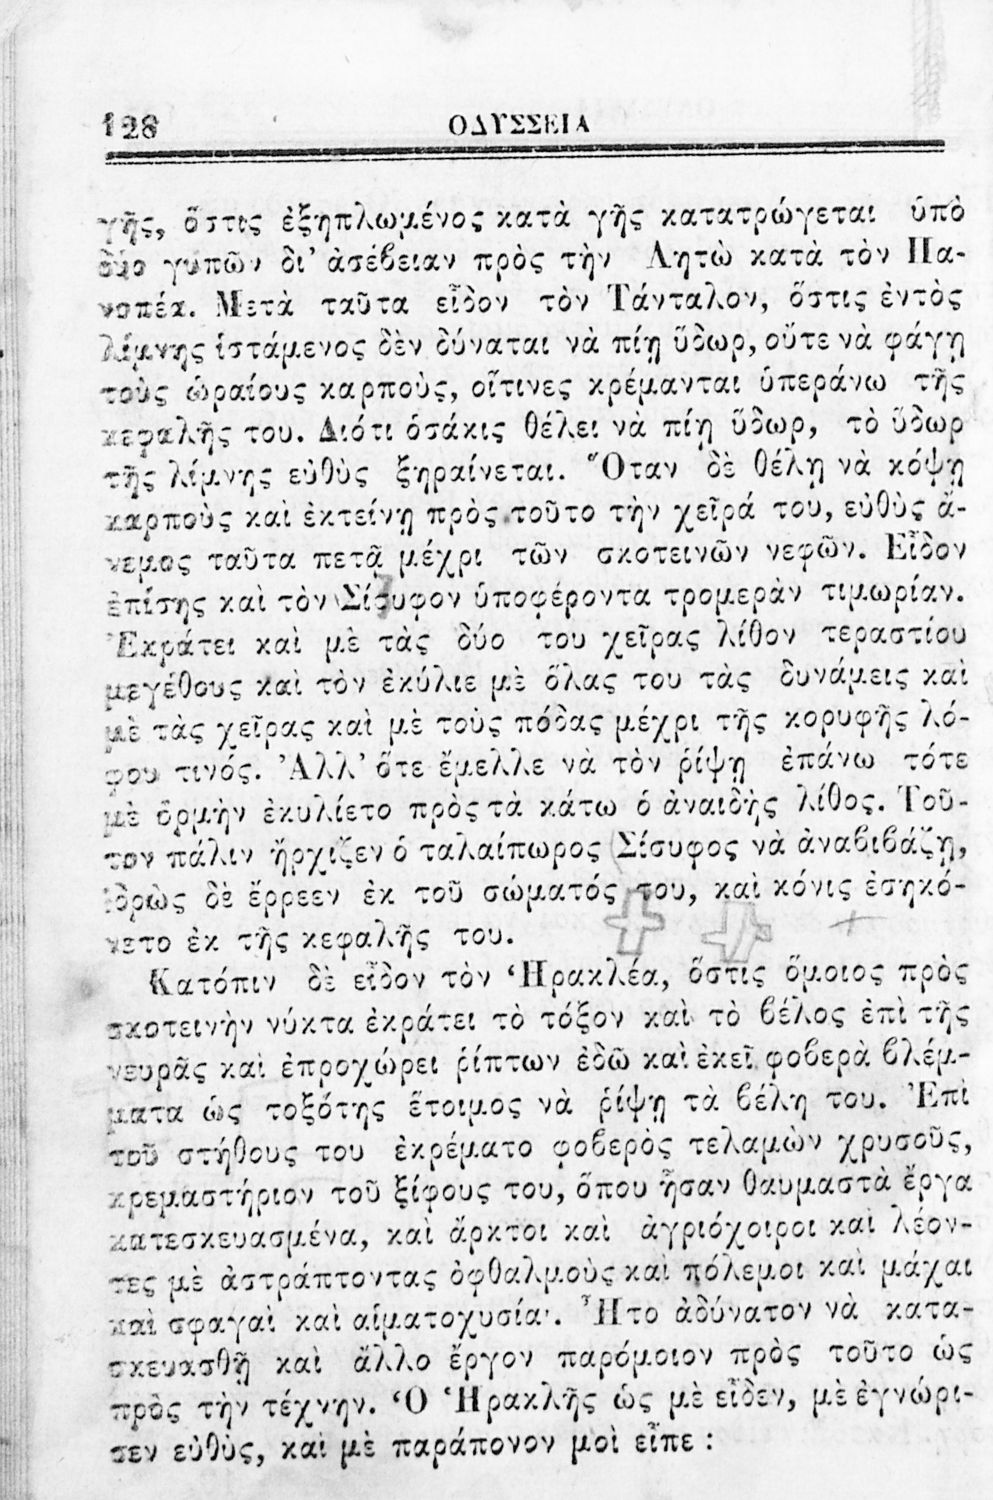 128 ΟΔΥΣΣΕΙΑ
γῆς, ὅστις ἐξηπλωμένος κατὰ γῆς κατατρώγεται ὑπὸ
δύο γυπῶν δι' ἀσέβειαν πρὸς τὴν Λητὼ κατὰ τὸν Πα-
νοπέα. Μετὰ ταῦτα εἶδον τὸν Τάνταλον, ὅστις ἐντὸς
λίμνης ἱστάμενος δὲν δύναται νὰ πίῃ ὕδωρ, οὔτε νὰ φάγῃ
τοὺς ὡραίους καρποὺς, οἵτινες κρέμανται ὑπεράνω τῆς
κεφαλῆς του. Διότι ὁσάκις θέλει νὰ πίῃ ὕδωρ, τὸ ὕδωρ
τῆς λίμνης εὐθὺς ξηραίνεται. Ὅταν δὲ θέλῃ νὰ κόψῃ
καρποὺς καὶ ἐκτείνῃ πρὸς τοῦτο τὴν χεῖρά του, εὐθὺς ἄ-
νεμος ταῦτα πετᾷ μέχρι τῶν σκοτεινῶν νεφῶν. Εἶδον
ἐπίσης καὶ τὸν Σίσυφον ὑποφέροντα τρομερὰν τιμωρίαν.
Ἐκράτει καὶ μὲ τὰς δύο του χεῖρας λίθον τεραστίου
μεγέθους καὶ τὸν ἐκύλιε μὲ ὅλας του τὰς δυνάμεις καὶ
μὲ τὰς χεῖρας καὶ μὲ τοὺς πόδας μέχρι τῆς κορυφῆς λό-
φου τινός. Ἀλλ' ὅτε ἔμελλε νὰ τὸν ῥίψῃ ἐπάνω τότε
μὲ ὁρμὴν ἐκυλίετο πρὸς τὰ κάτω ὁ ἀναιδὴς λίθος. Τοῦ-
τον πάλιν ἤρχιζεν ὁ ταλαίπωρος Σίσυφος νὰ ἀναβιβάζῃ,
ἱδρὼς δὲ ἔρρεεν ἐκ τοῦ σώματός του, καὶ κόνις ἐσηκό-
νετο ἐκ τῆς κεφαλῆς του.
Κατόπιν δὲ εἶδον τὸν Ἡρακλέα, ὅστις ὅμοιος πρὸς
σκοτεινὴν νύκτα ἐκράτει τὸ τόξον καὶ τὸ βέλος ἐπὶ τῆς
νευρᾶς καὶ ἐπροχώρει ῥίπτων ἐδῶ καὶ ἐκεῖ φοβερὰ βλέμ-
ματα ὡς τοξότης ἕτοιμος νὰ ῥίψῃ τὰ βέλη του. Ἐπὶ
τοῦ στήθους του ἐκρέματο φοβερὸς τελαμὼν χρυσοῦς,
κρεμαστήριον τοῦ ξίφους του, ὅπου ἦσαν θαυμαστὰ ἔργα
κατεσκευασμένα, καὶ ἄρκτοι καὶ ἀγριόχοιροι καὶ λέον-
τες μὲ ἀστράπτοντας ὀφθαλμοὺς καὶ πόλεμοι καὶ μάχαι
καὶ σφαγαὶ καὶ αἱματοχυσία·. Ἦτο ἀδύνατον νὰ κατα-
σκευασθῇ καὶ ἄλλο ἔργον παρόμοιον πρὸς τοῦτο ὡς
πρὸς τὴν τέχνην. Ὁ Ἡρακλῆς ὡς μὲ εἶδεν, μὲ ἐγνώρι-
σεν εὐθὺς, καὶ μὲ παράπονον μοὶ εἶπε :